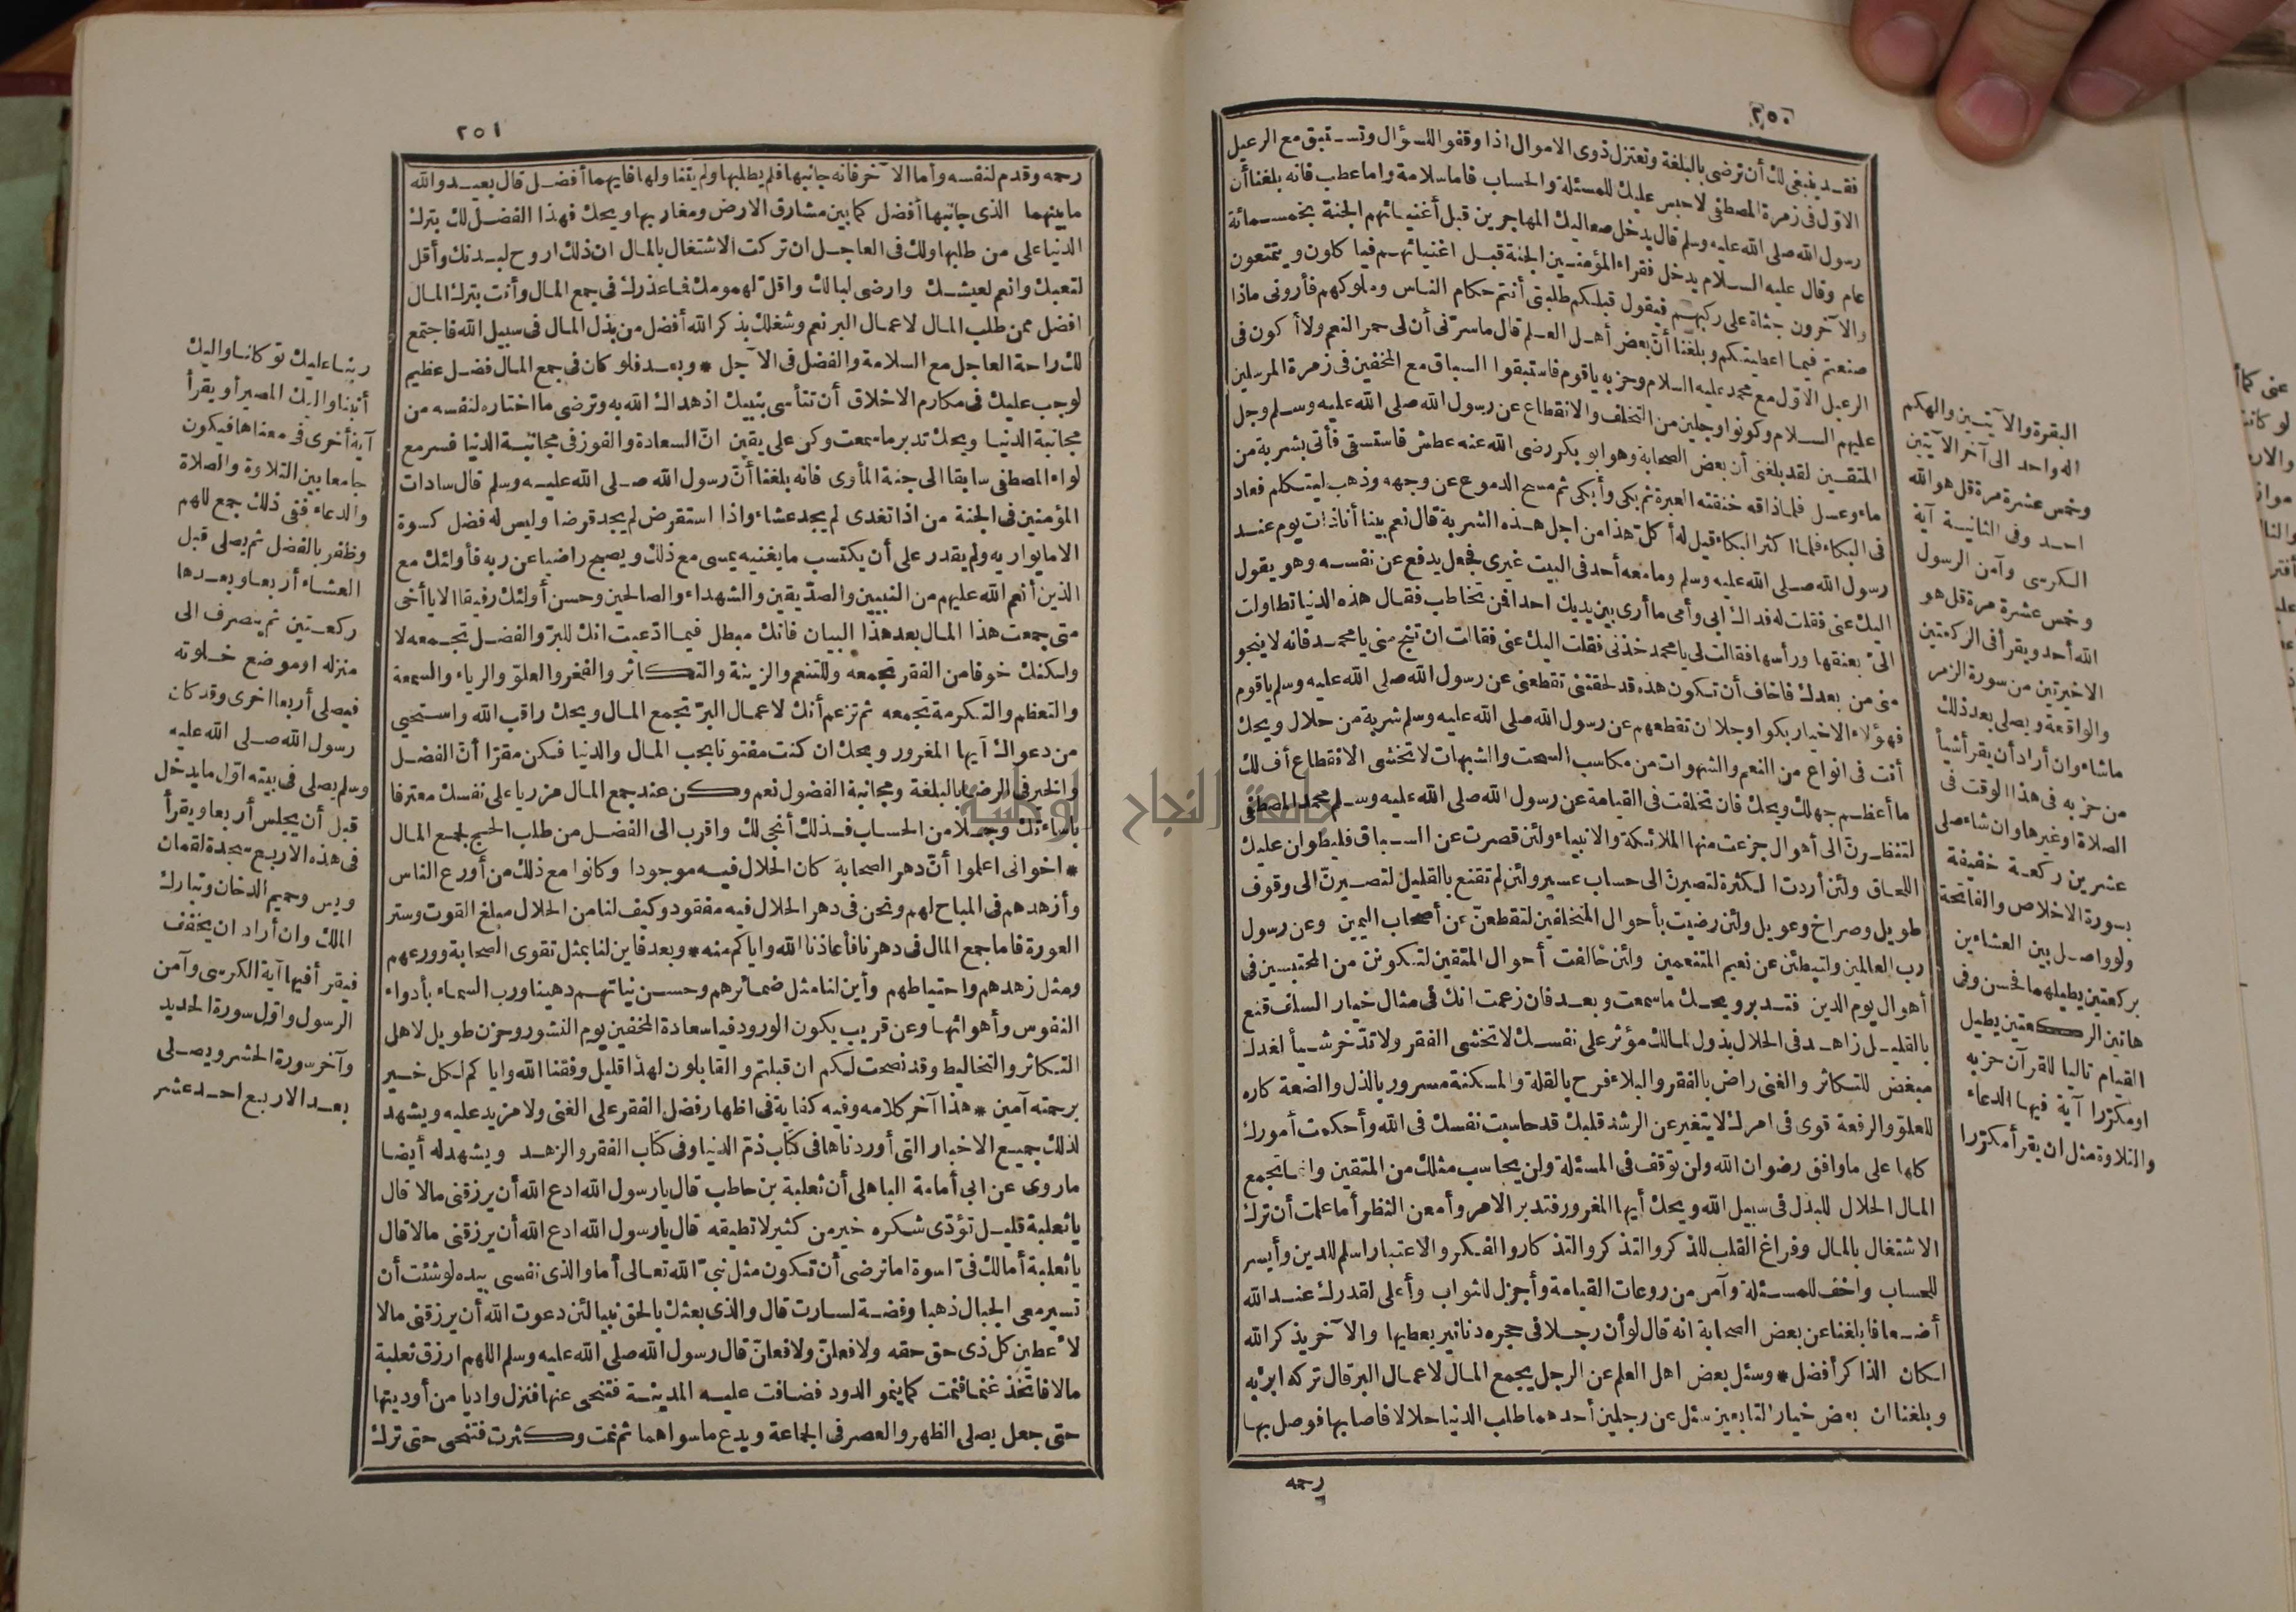 ٢٥٠
فقد ينبغى لك أن ترضى بالبلغة وتعتزل ذوى الاموال اذا وقفوا للسؤال وتستبق مع الرعيل
الاوّل فى زمرة المصطفى لا حبس عليك للمسئلة والحساب فاما سلامة واما عطب فانه بلغنا أن
رسول الله صلى الله عليه وسلم قال يدخل صعاليك المهاجرين قبل أغنيائهم الجنة بخمسمائة
عام وقال عليه السلام يدخل فقراء المؤمنين الجنة قبل اغنيائهم فيأكلون ويتمتعون
والآخرون جثاة على ركبهم فيقول قبلكم طلبتى أنتم حكام الناس وملوكهم فأرونى ماذا
صنعتم فيما اعطيتكم وبلغنا أنّ بعض أهل العلم قال ما سرّنى أن لى حمر النعم ولا أكون فى
الرعيل الاوّل مع محمد عليه السلام وحزبه يا قوم فاستبقوا السباق مع المخفين فى زمرة المرسلين
عليهم السلام وكونوا وجلين من التخلف والانقطاع عن رسول الله صلى الله عليه وسلم وجل
المتقين لقد بلغنى أن بعض الصحابة وهو ابو بكر رضى الله عنه عطش فاستسقى فأتى بشربة من
ماء وعسل فلما ذاقه خنقته العبرة ثم بكى وأبكى ثم مسح الدموع عن وجهه وذهب ليتكلم فعاد
فى البكاء فلما اكثر البكاء قيل له أكلّ هذا من اجل هذه الشربة قال نعم بينا أنا ذات يوم عند
رسول الله صلى الله عليه وسلم وما معه أحد فى البيت غيرى فجعل يدفع عن نفسه وهو يقول
اليك عنى فقلت له فداك ابى وأمى ما أرى بين يديك احدا فمن تخاطب فقال هذه الدنيا تطاولت
الىّ بعنقها ورأسها فقالت لى يا محمد خذنى فقلت اليك عنى فقالت ان تنج منى يا محمد فانه لا ينجو
منى من بعدك فاخاف أن تكون هذه قد لحقتنى تقطعنى عن رسول الله صلى الله عليه وسلم يا قوم
فهؤلاء الاخيار بكوا وجلا ان تقطعهم عن رسول الله صلى الله عليه وسلم شربة من حلال ويحك
أنت فى انواع من النعم والشهوات من مكاسب السحت والشبهات لا تخشى الانقطاع أف لك
ما أعظم جهلك ويحك فان تخلفت فى القيامة عن رسول الله صلى الله عليه وسلم محمد المصطفى
لتنظرنّ الى أهوال جزعت منها الملائكة والانبياء ولئن قصرت عن السباق فليطولن عليك
اللحاق ولئن أردت الكثرة لتصيرنّ الى حساب عسير ولئن لم تقنع بالقليل لتصيرنّ الى وقوف
طويل وصراخ وعويل ولئن رضيت بأحوال المتخلفين لتقطعنّ عن أصحاب اليمين وعن رسول
رب العالمين ولتبطئن عن نعيم المتنعمين ولئن خالفت أحوال المتقين لتكونن من المحتبسين فى
أهوال يوم الدين فتدبر ويحك ما سمعت وبعد فان زعمت انك فى مثال خيار السلف قنع
بالقليل زاهد فى الحلال بذول لمالك مؤثر على نفسك لا تخشى الفقر ولا تدّخر شيأ لغدك
مبغض للتكاثر والغنى راض بالفقر والبلاء فرح بالقلة والمسكنة مسرور بالذل والضعة كاره
للعلوّ والرفعة قوى فى امرك لا يتغير عن الرشد قلبك قد حاسبت نفسك فى الله وأحكمت أمورك
كلها على ما وافق رضوان الله ولن توقف فى المسئلة ولن يحاسب مثلك من المتقين وانما تجمع
المال الحلال للبذل فى سبيل الله ويحك أيها المغرور فتدبر الامر وأمعن النظر أما علمت أن ترك
الاشتغال بالمال وفراغ القلب للذكر والتذكر والتذكار والفكر والاعتبار اسلم للدين وأيسر
للحساب واخف للمسئلة وآمن من روعات القيامة وأجزل للثواب وأعلى لقدرك عند الله
أضعافا بلغنا عن بعض الصحابة انه قال لو أن رجلا فى حجره دنانير يعطيها والآخر يذكر الله
لكان الذاكر أفضل * وسئل بعض اهل العلم عن الرجل يجمع المال لاعمال البر قال تركه ابرّ به
وبلغنا ان بعض خيار التابعين سئل عن رجلين أحدهما طلب الدنيا حلالا فاصابها فوصل بها
رحمه
البقرة والآيتين والهكم
اله واحد الى آخر الآيتين
وخمس عشرة مرة قل هو الله
احد وفى الثانية آية
الكرسى وآمن الرسول
وخمس عشرة مرة قل هو
الله أحد ويقرأ فى الركعتين
الاخيرتين من سورة الزمر
والواقعة ويصلى بعد ذلك
ما شاء وان أراد أن يقرأ شيأ
من حزبه فى هذا الوقت فى
الصلاة او غيرها وان شاء صلى
عشرين ركعة خفيفة
بسورة الاخلاص والفاتحة
ولو واصل بين العشاءين
بركعتين يطيلهما فحسن وفى
هاتين الركعتين يطيل
القيام تاليا للقرآن حزبه
او مكرّرا آية فيها الدعاء
والتلاوة مثل ان يقرأ مكرّرا
٢٥١
رحمه وقدم لنفسه وأما الآخر فانه جانبها فلم يطلبها ولم يتناولها فايهما أفضل قال بعيد والله
ما بينهما الذى جانبها أفضل كما بين مشارق الارض ومغاربها ويحك فهذا الفضل لك بترك
الدنيا على من طلبها ولك فى العاجل ان تركت الاشتغال بالمال ان ذلك اروح لبدنك وأقل
لتعبك وانعم لعيشك وارضى لبالك واقلّ لهمومك فما عذرك فى جمع المال وأنت بترك المال
افضل ممن طلب المال لاعمال البر نعم وشغلك بذكر الله أفضل من بذل المال فى سبيل الله فاجتمع
لك راحة العاجل مع السلامة والفضل فى الآجل * وبعد فلو كان فى جمع المال فضل عظيم
لوجب عليك فى مكارم الاخلاق أن تتأسى بنبيك اذ هداك الله به وترضى ما اختاره لنفسه من
مجانبة الدنيا ويحك تدبر ما سمعت وكن على يقين انّ السعادة والفوز فى مجانبة الدنيا فسر مع
لواء المصطفى سابقا الى جنة المأوى فانه بلغنا أنّ رسول الله صلى الله عليه وسلم قال سادات
المؤمنين فى الجنة من اذا تغدى لم يجد عشاء واذا استقرض لم يجد قرضا وليس له فضل كسوة
الا ما يواريه ولم يقدر على أن يكتسب ما يغنيه يمسى مع ذلك ويصبح راضيا عن ربه فأولئك مع
الذين أنعم الله عليهم من النبيين والصدّيقين والشهداء والصالحين وحسن أولئك رفيقا الا يا أخى
متى جمعت هذا المال بعد هذا البيان فانك مبطل فيما ادّعيت انك للبرّ والفضل تجمعه لا
ولكنك خوفا من الفقر تجمعه وللتنعم والزينة والتكاثر والفخر والعلوّ والرياء والسمعة
والتعظم والتكرمة تجمعه ثم تزعم أنك لاعمال البرّ تجمع المال ويحك راقب الله واستحيى
من دعواك أيها المغرور ويحك ان كنت مفتونا بحب المال والدنيا فكن مقرّا أنّ الفضل
والخير فى الرضا بالبلغة ومجانبة الفضول نعم وكن عند جمع المال مزريا على نفسك معترفا
باساءتك وجلا من الحساب فذلك أنجى لك واقرب الى الفضل من طلب الحجج لجمع المال
* اخوانى اعلموا أنّ دهر الصحابة كان الحلال فيه موجودا وكانوا مع ذلك من أورع الناس
وأزهدهم فى المباح لهم ونحن فى دهر الحلال فيه مفقود وكيف لنا من الحلال مبلغ القوت وستر
العورة فاما جمع المال فى دهرنا فأعاذنا الله واياكم منه * وبعد فاين لنا بمثل تقوى الصحابة وورعهم
ومثل زهدهم واحتياطهم وأين لنا مثل ضمائرهم وحسن نياتهم دهينا ورب السماء بأدواء
النفوس وأهوائها وعن قريب يكون الورود فيا سعادة المخفين يوم النشور وحزن طويل لاهل
التكاثر والتخاليط وقد نصحت لكم ان قبلتم والقابلون لهذا قليل وفقنا الله واياكم لكل خير
برحمته آمين * هذا آخر كلامه وفيه كفاية فى اظهار فضل الفقر على الغنى ولا مزيد عليه ويشهد
لذلك جميع الاخبار التى أوردناها فى كتاب ذمّ الدنيا وفى كتاب الفقر والزهد ويشهد له أيضا
ما روى عن ابى أمامة الباهلى أن ثعلبة بن حاطب قال يا رسول الله ادع الله أن يرزقنى مالا قال
يا ثعلبة قليل تؤدّى شكره خير من كثير لا تطيقه قال يا رسول الله ادع الله أن يرزقنى مالا قال
يا ثعلبة أمالك فىّ اسوة اما ترضى أن تكون مثل نبىّ الله تعالى أما والذى نفسى بيده لو شئت أن
تسير معى الجبال ذهبا وفضة لسارت قال والذى بعثك بالحق نبيا لئن دعوت الله أن يرزقنى مالا
لأعطين كل ذى حق حقه ولافعلنّ ولافعلنّ قال رسول الله صلى الله عليه وسلم اللهم ارزق ثعلبة
مالا فاتّخذ غنما فنمت كما ينمو الدود فضاقت عليه المدينة فتنحى عنها فنزل واديا من أوديتها
حتى جعل يصلى الظهر والعصر فى الجماعة ويدع ما سواهما ثم نمت وكثرت فتنحى حتى ترك
ربنا عليك توكلنا واليك
أنبنا واليك المصير أو يقرأ
آية أخرى فى معناها فيكون
جامعا بين التلاوة والصلاة
والدعاء ففى ذلك جمع للهم
وظفر بالفضل ثم يصلى قبل
العشاء أربعا وبعدها
ركعتين ثم ينصرف الى
منزله او موضع خلوته
فيصلى أربعا اخرى وقد كان
رسول الله صلى الله عليه
وسلم يصلى فى بيته اوّل ما يدخل
قبل أن يجلس أربعا ويقرأ
فى هذه الاربع سجدة لقمان
ويس وحميم الدخان وتبارك
الملك وان أراد ان يخفف
فيقرأ فيها آية الكرسى وآمن
الرسول واوّل سورة الحديد
وآخر سورة الحشر ويصلى
بعد الاربع احد عشر
جامعة النجاح الوطنية